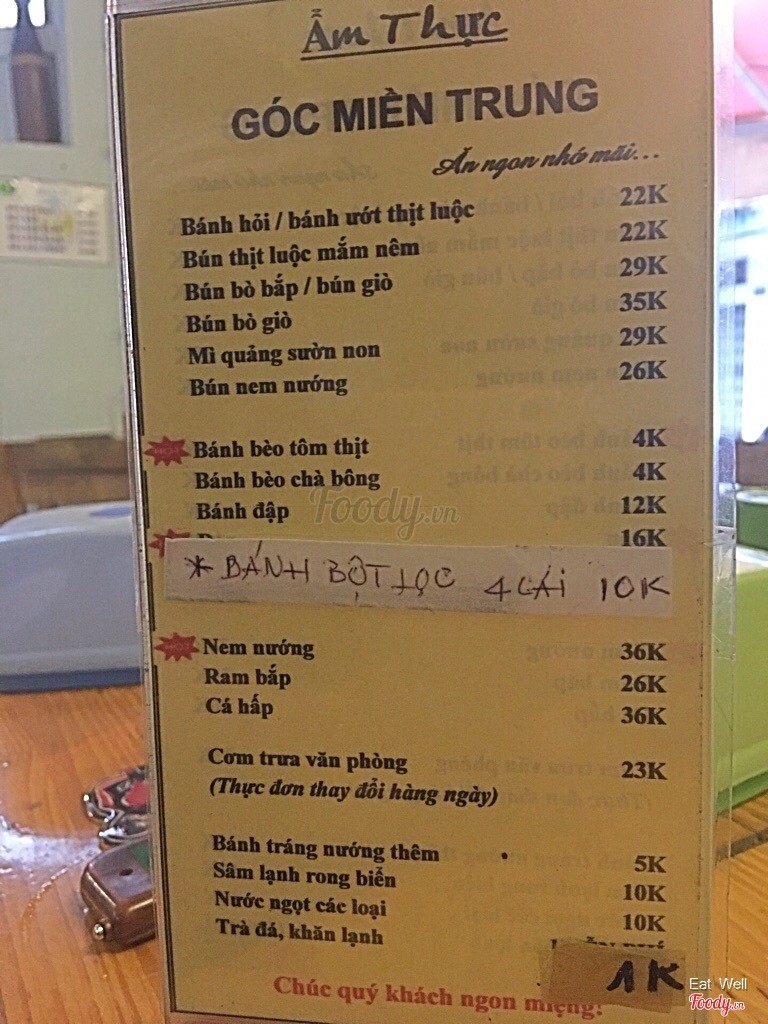 Ẩm Thực
GÓC MIỀN TRUNG
Ăn ngon nhớ mãi...
Bánh hỏi / bánh ướt thịt luộc 22K
Bún thịt luộc mắm nêm 22K
Bún bò bắp / bún giò 29K
Bún bò giò 35K
Mì quảng sườn non 29K
Bún nem nướng 26K
Bánh bèo tôm thịt 4K
Bánh bèo chà bông 4K
Bánh đập 12K
16K
* BÁNH BỘT LỌC 4 CÁI 10K
Nem nướng 36K
Ram bắp 26K
Cá hấp 36K
Cơm trưa văn phòng 23K
(Thực đơn thay đổi hàng ngày)
Bánh tráng nướng thêm 5K
Sâm lạnh rong biển 10K
Nước ngọt các loại 10K
Trà đá, khăn lạnh 1K
Chúc quý khách ngon miệng!
Foody.vn
Eat Well
Foody.vn